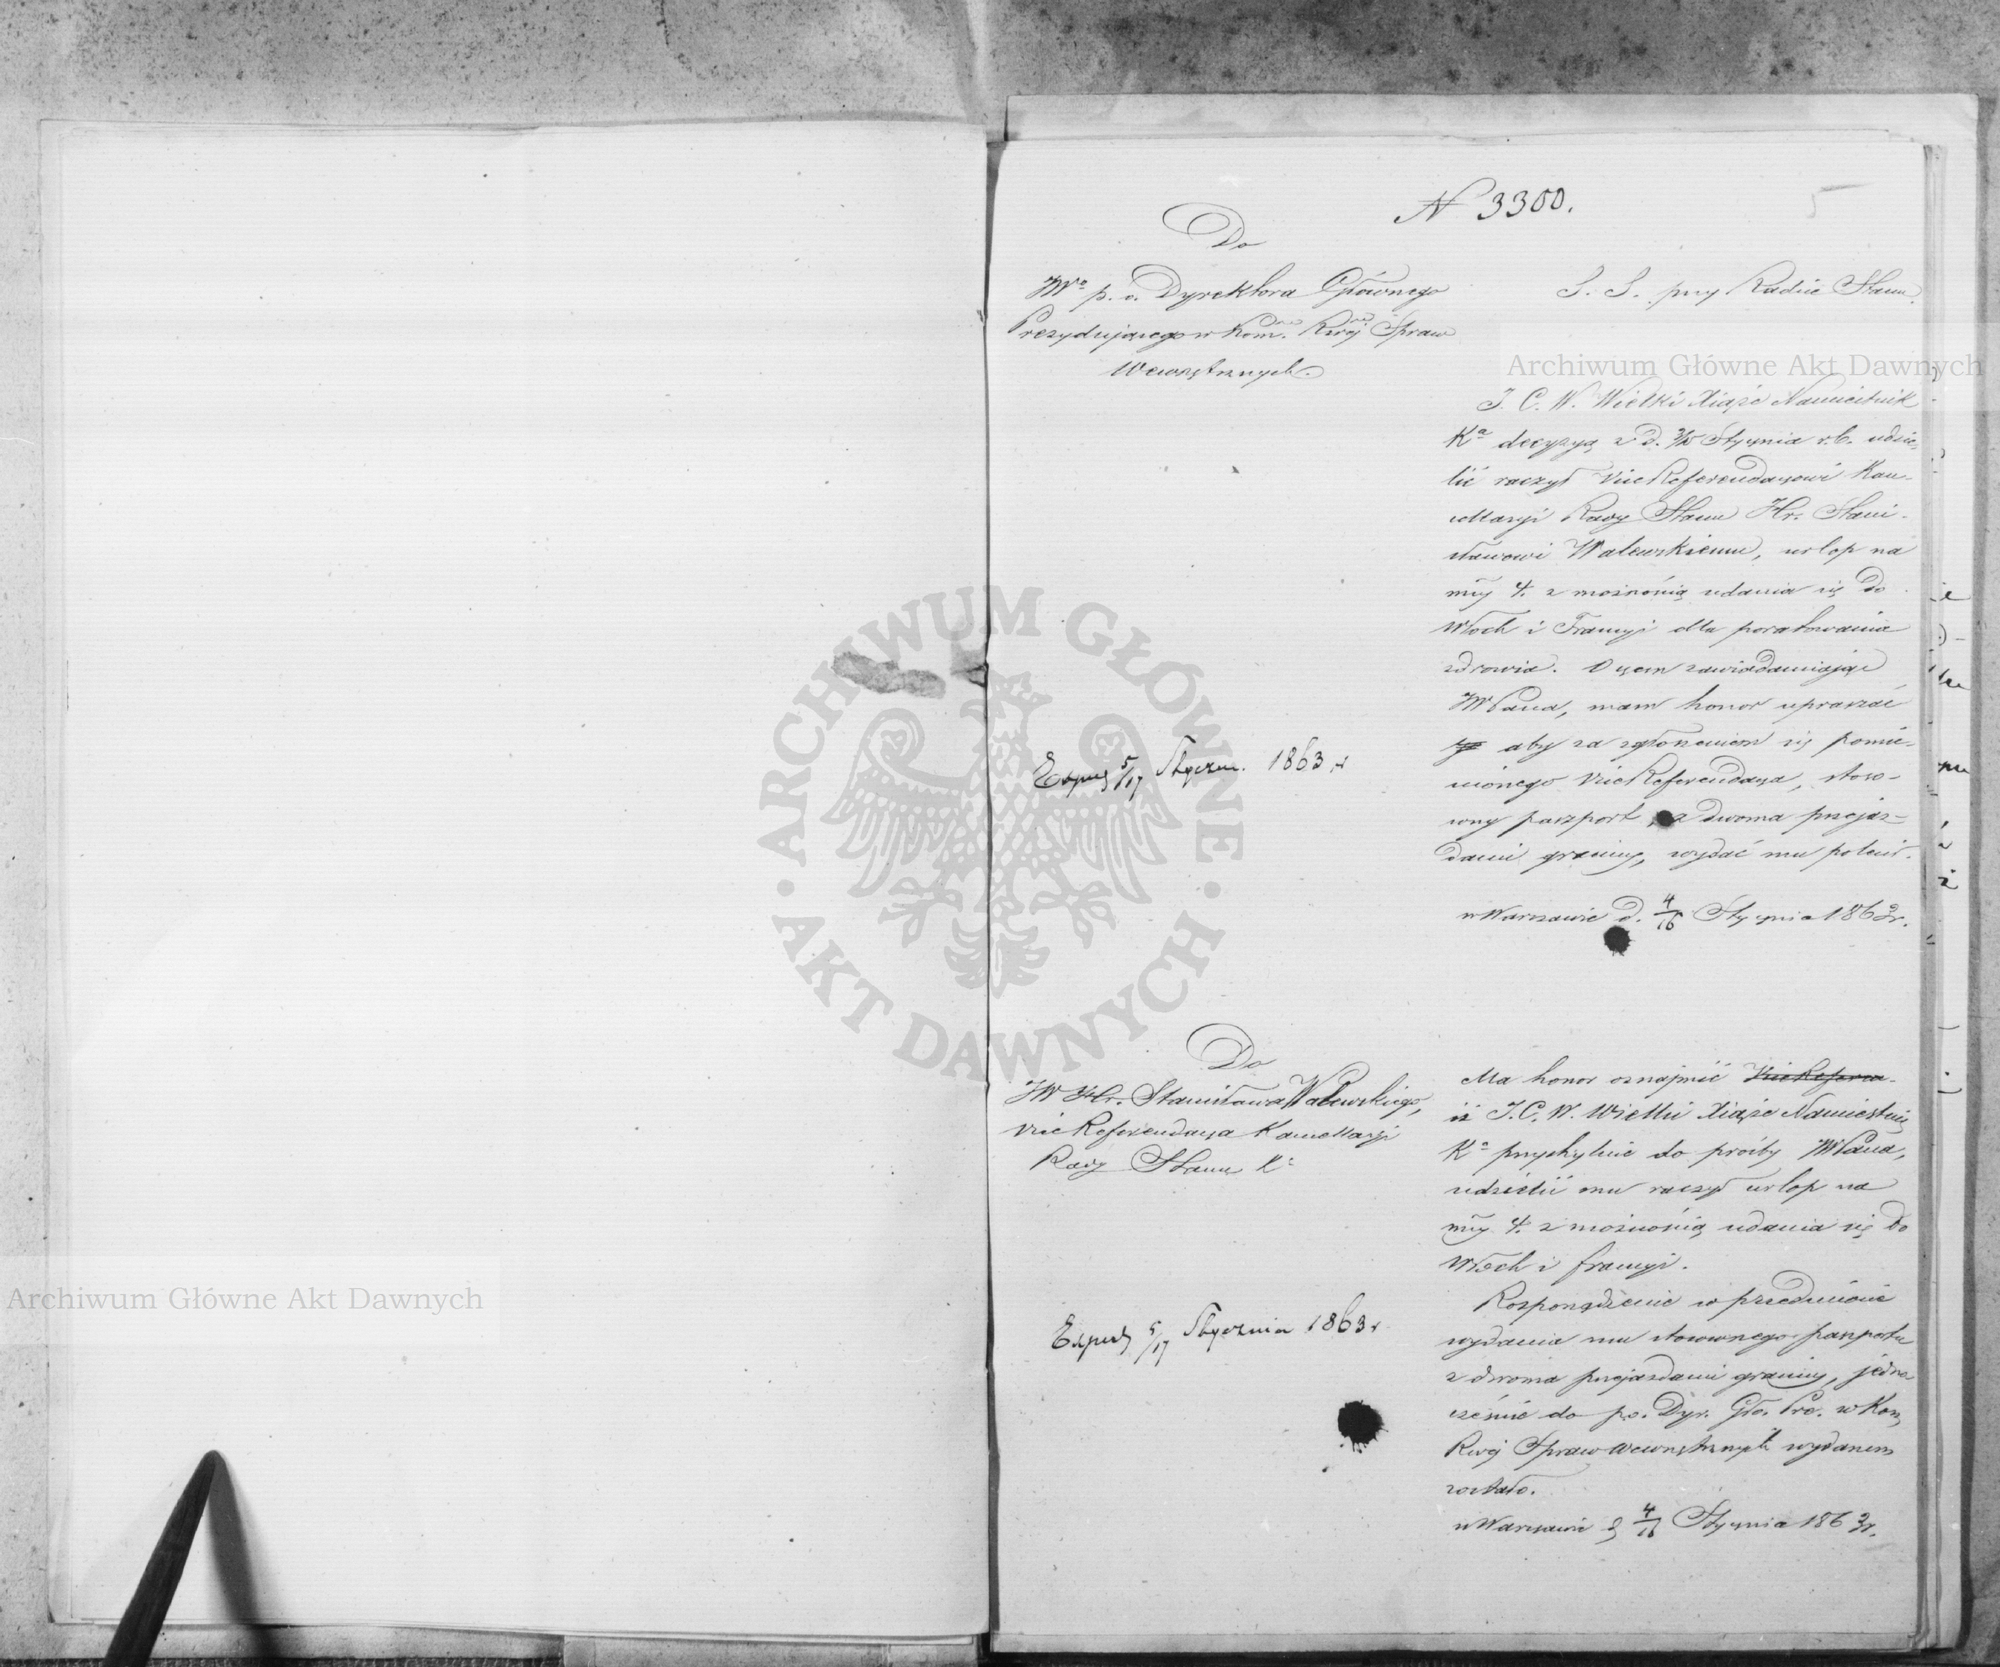 N 3300.
5
Do
JWo p. o. Dyrektora Głównego
Prezydującego w Kom. Rząd. Spraw
Wewnętrznych.
S. S. przy Radzie Stanu
J. C. W. Wielki Xiąże Namiestnik
Ka decyzyą z d. 3/15 Stycznia r. b. udzie-
lić raczył ViceReferendarzowi Kan-
cellaryi Rady Stanu Hr. Stani-
sławowi Walewskiemu, urlop na
mcy 4. z możnością udania się do
Włoch i Francyi dla poratowania
zdrowia. O czem zawiadamiając
JWPana, mam honor upraszać
aby za zgłoszeniem się pomie-
nionego ViceReferendarza, stoso-
wny paszport z dwoma przejaz-
dami granicy, wydać mu polecił.
w Warszawie d. 4/16 Stycznia 1863 r.
Exped 5/17 Styczn. 1863 r
Do
JW Hr. Stanisława Walewskiego,
ViceReferendarza Kancellaryi
Rady Stanu Ka
Ma honor oznajmić ViceReferen-
iż J. C. W. Wielki Xiąże Namiestnik
Ka przychylnie do prośby JWPana,
udzielić mu raczył urlop na
mcy 4. z możnością udania się do
Włoch i Francyi.
Rozporządzenie w przedmiocie
wydania mu stosownego paszportu
z dwoma przejazdami granicy, jedno-
cześnie do p.o. Dyr. Głó. Pre. w Kom
Rząd Spraw Wewnętrznych wydanem
zostało.
w Warszawie d 4/16 Stycznia 1863 r.
Exped 5/17 Stycznia 1863 r
Archiwum Główne Akt Dawnych
Archiwum Główne Akt Dawnych
ARCHIWUM GŁÓWNE · AKT DAWNYCH ·